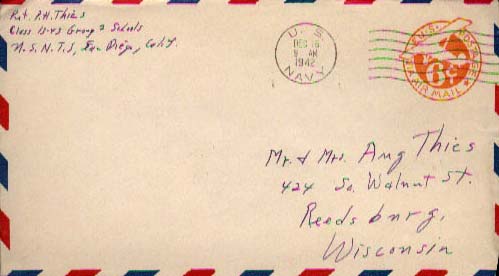 Pvt. P.H. Thies
Class 13-43 Group 2 Schools
N.S.N.T.S, San Diego, Calif.
U.S.
DEC 16
9 AM
1942
NAVY
U.S. POSTAGE
6¢
AIR MAIL
Mr. & Mrs. Aug Thies
424 So. Walnut St.
Reedsburg,
Wisconsin